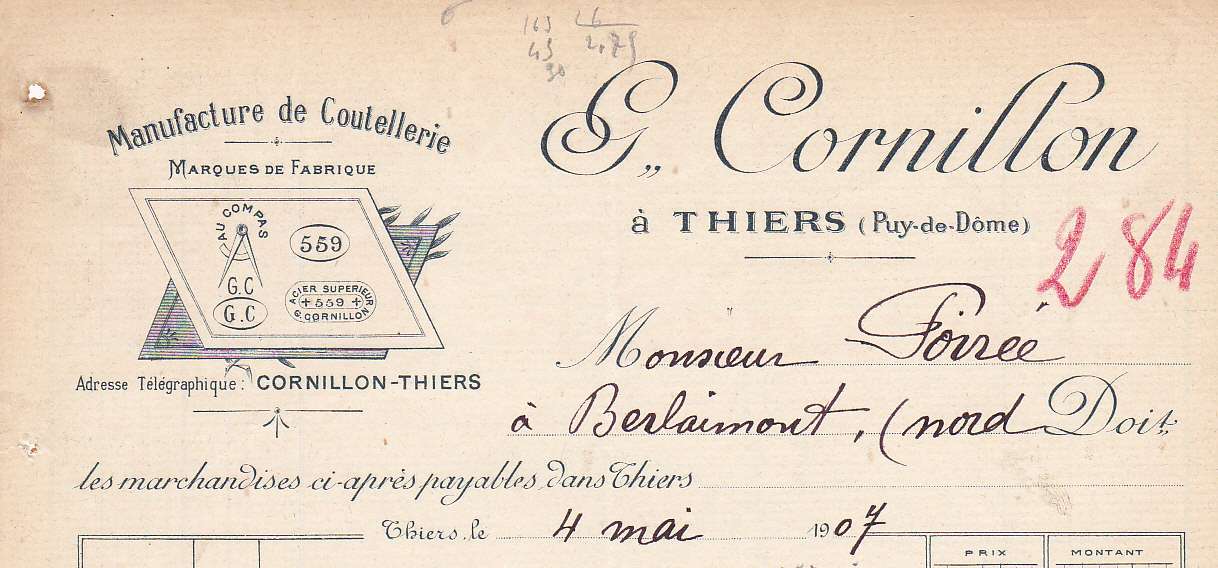 165 26
45 2,75
30
Manufacture de Coutellerie
G,, Cornillon
MARQUES DE FABRIQUE
AU COMPAS
559
G.C
G.C
ACIER SUPERIEUR
+559+
G. CORNILLON
à THIERS (Puy-de-Dôme)
284
Monsieur Poirée
Adresse Télégraphique: CORNILLON-THIERS
à Berlaimont, (nord Doit,
les marchandises ci-après payables dans Thiers
Thiers, le 4 mai 1907
PRIX MONTANT